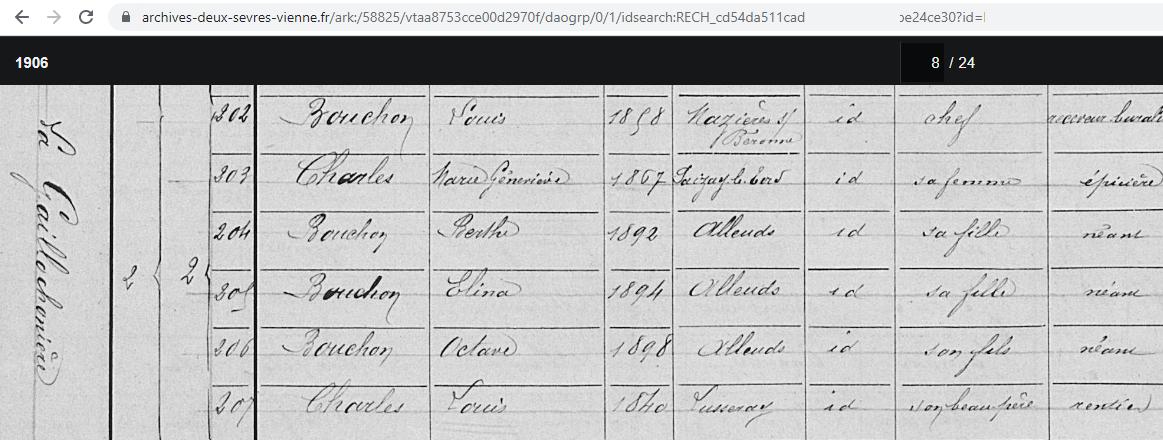 archives-deux-sevres-vienne.fr/ark:/58825/vtaa8753cce00d2970f/daogrp/0/1/idsearch:RECH_cd54da511cad be24ce30?id=
1906 8 / 24
202 Bouchon Louis 1858 Mazières s/ Béronne id chef receveur burali
203 Charles Marie Géneviève 1867 id sa femme épicière
204 Bouchon Berthe 1892 Alleuds id sa fille néant
205 Bouchon Elina 1894 Alleuds id sa fille néant
2 2
206 Bouchon Octave 1898 Alleuds id son fils néant
207 Charles Louis 1840 Lusseray id son beau père rentier